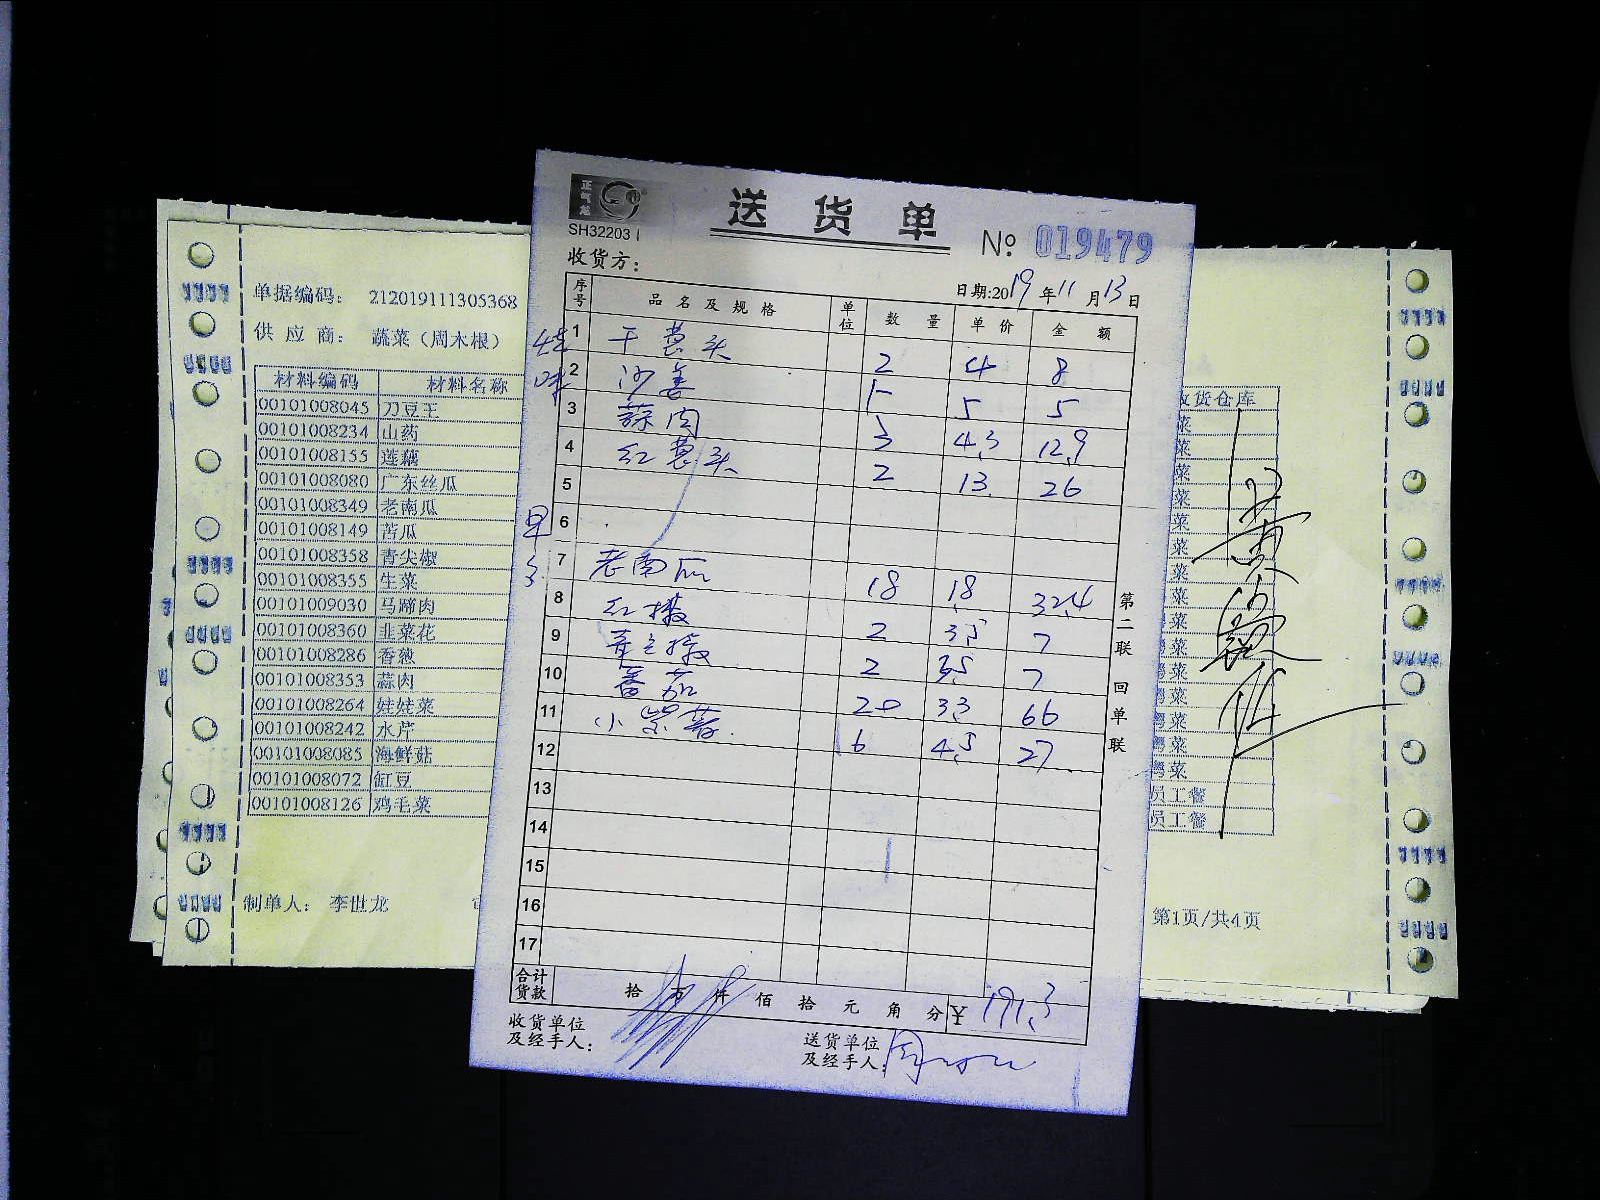 正气龙
SH32203 I
送货单
№ 019479
收货方：
日期:2019年11月13日
序号 品名及规格 单位 数量 单价 金额
烧味
1 干葱头 2 4 8
2 沙姜 1 5 5
3 蒜肉 3 4.3 12.9
4 红葱头 2 13 26
5
6
7 老南瓜 18 1.8 32.4
8 红椒 2 3.5 7
9 2 3.5 7
10 番茄 20 3.3 66
11 小紫薯 6 4.5 27
12
13
14
15
16
17
合计货款 拾万仟佰拾元角分 ¥ 191.3
收货单位及经手人：
送货单位及经手人：
第二联 回单联
单据编码： 212019111305368
供应商： 蔬菜（周木根）
材料编码 材料名称 收货仓库
00101008045 刀豆王 菜
00101008234 山药 菜
00101008155 莲藕 菜
00101008080 广东丝瓜 菜
00101008349 老南瓜 菜
00101008149 苦瓜 菜
00101008358 青尖椒 菜
00101008355 生菜 菜
00101009030 马蹄肉 菜
00101008360 韭菜花 菜
00101008286 香葱 菜
00101008353 蒜肉 菜
00101008264 娃娃菜 菜
00101008242 水芹 粤菜
00101008085 海鲜菇 粤菜
00101008072 缸豆 员工餐
00101008126 鸡毛菜 员工餐
制单人： 李世龙
第1页/共4页